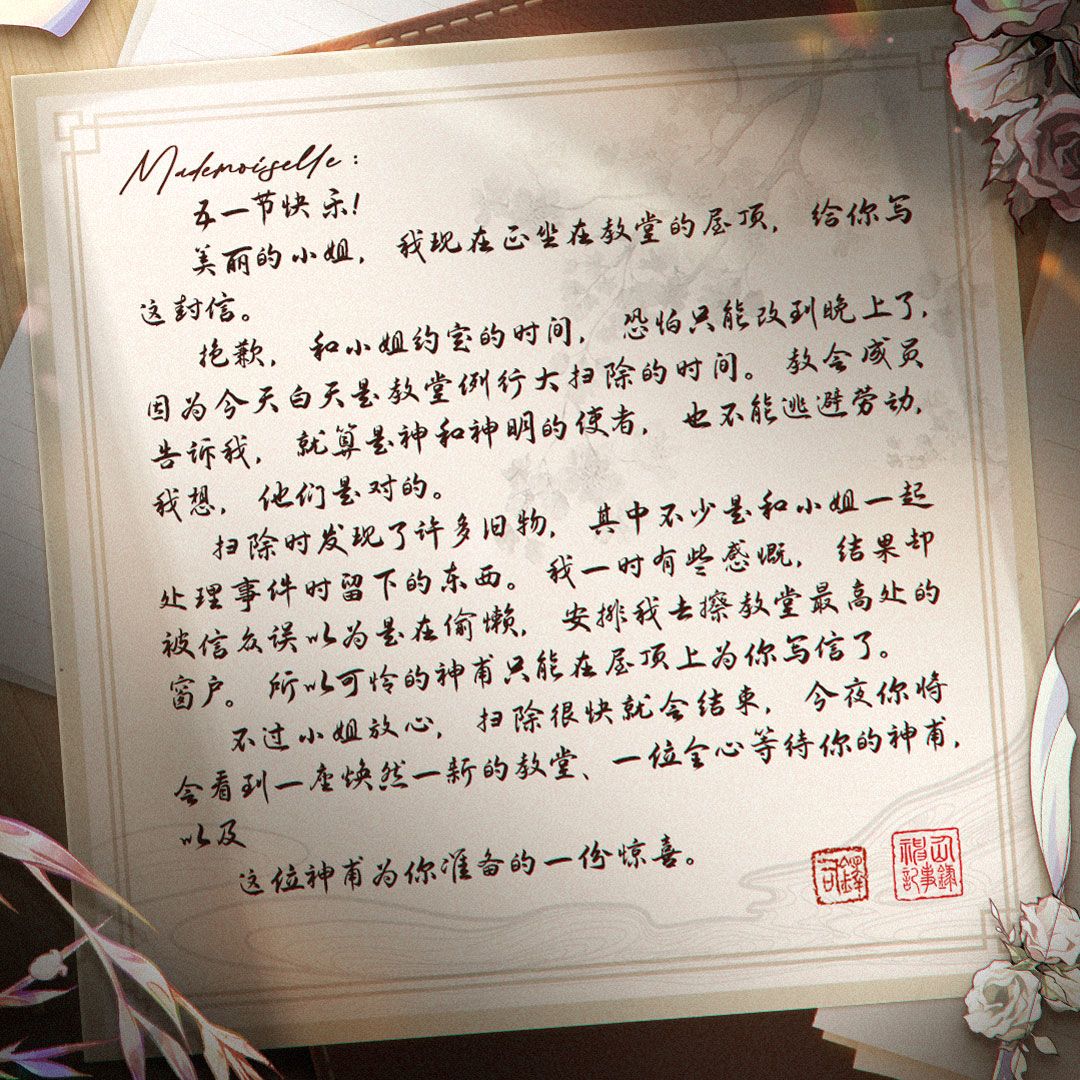 Mademoiselle：
五一节快乐！
美丽的小姐，我现在正坐在教堂的屋顶，给你写
这封信。
抱歉，和小姐约定的时间，恐怕只能改到晚上了，
因为今天白天是教堂例行大扫除的时间。教会成员
告诉我，就算是神和神明的使者，也不能逃避劳动，
我想，他们是对的。
扫除时发现了许多旧物，其中不少是和小姐一起
处理事件时留下的东西。我一时有些感慨，结果却
被信众误以为是在偷懒，安排我去擦教堂最高处的
窗户。所以可怜的神甫只能在屋顶上为你写信了。
不过小姐放心，扫除很快就会结束，今夜你将
会看到一座焕然一新的教堂、一位全心等待你的神甫，
以及
这位神甫为你准备的一份惊喜。